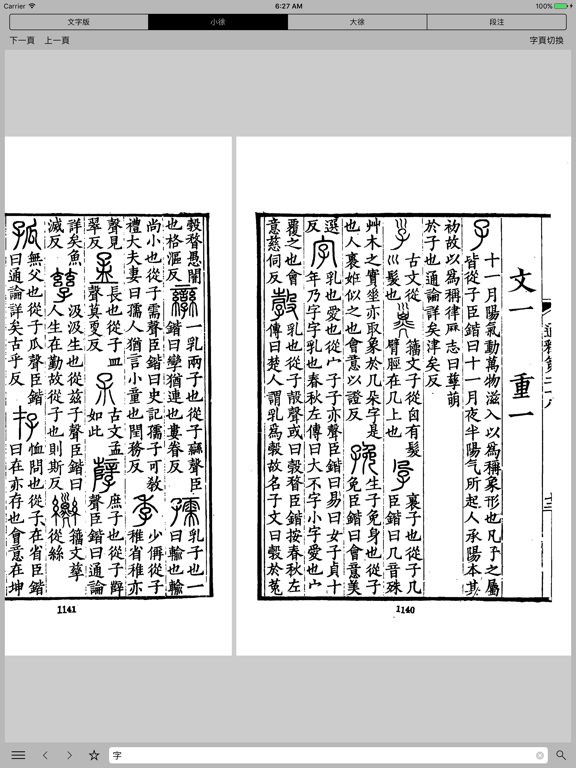 Carrier
6:27 AM
100%
文字版
小徐
大徐
段注
下一頁
上一頁
字頁切換
文一 重一
子
十一月陽氣動萬物滋入以爲稱象形也凡子之屬
皆從子臣鍇曰十一月夜半陽氣所起人承陽本其
初故以爲稱律曆志曰孳萌
於子也通論詳矣津矣反
古文從
巛髮也
籒文子從囟有髮
臂脛在几上也
孕
裹子也從子几
臣鍇曰几音殊
艸木之實垂亦取象於几朵字是
也人裹妊似之也會意以證反
㝃
生子免身也從子
免臣鍇曰會意美
選
反
字
乳也愛也從宀子子亦聲臣鍇曰易曰女子貞十
年乃字字乳也春秋左傳曰大不字小字愛也宀
覆之也會
意慈伺反
㝅
乳也從子㱿聲或曰㝅瞀臣鍇按春秋左
傳曰楚人謂乳爲㝅故名子文曰㝅於菟
1140
㝅瞀愚闇
也格漚反
孿
一乳兩子也從子䜌聲臣
鍇曰孿猶連也婁眷反
孺
乳子也一
曰輸也輸
尚小也從子需聲臣鍇曰史記孺子可敎
禮大夫妻曰孺人猶言小童也閏務反
季
少偁從子
稚省稚亦
聲見
翠反
孟
長也從子皿
聲莫更反
古文孟
如此
孼
庶子也從子辥
聲臣鍇曰通論
詳矣魚
滅反
孳
汲汲生也從兹子聲臣鍇曰
人生在勤故從子也則斯反
籒文孳
從絲
孤
無父也從子瓜聲臣鍇
曰通論詳矣古乎反
存
恤問也從子在省臣鍇
曰在亦存也會意在坤
1141
字